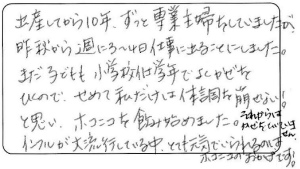 出産してから10年、ずっと専業主婦をしていましたが、
昨秋から週に3〜4日仕事に出ることにしました。
まだ子どもも小学校低学年でよくかぜを
ひくので、せめて私だけは体調を崩せない!
と思い、ホコニコを飲み始めました。
インフルが大流行している中、とても元気でいられるのは
ホコニコのおかげです!
これからは
せん。